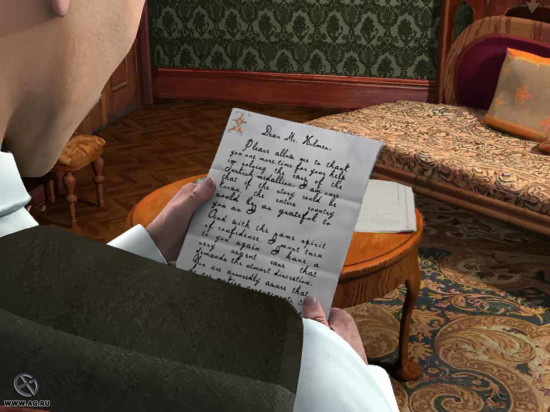 Dear Mr. Holmes.
Please allow me to thank
you one more time for your help
in solving the case of the
Turkish medallion. I am sure
that if the story could be
known, the entire country
would be as grateful to
you as I am.
And with the same spirit
of confidence, I must turn
to you again. I have a
very urgent case that
demands the utmost discretion.
You are assuredly aware that
WWW.AG.RU